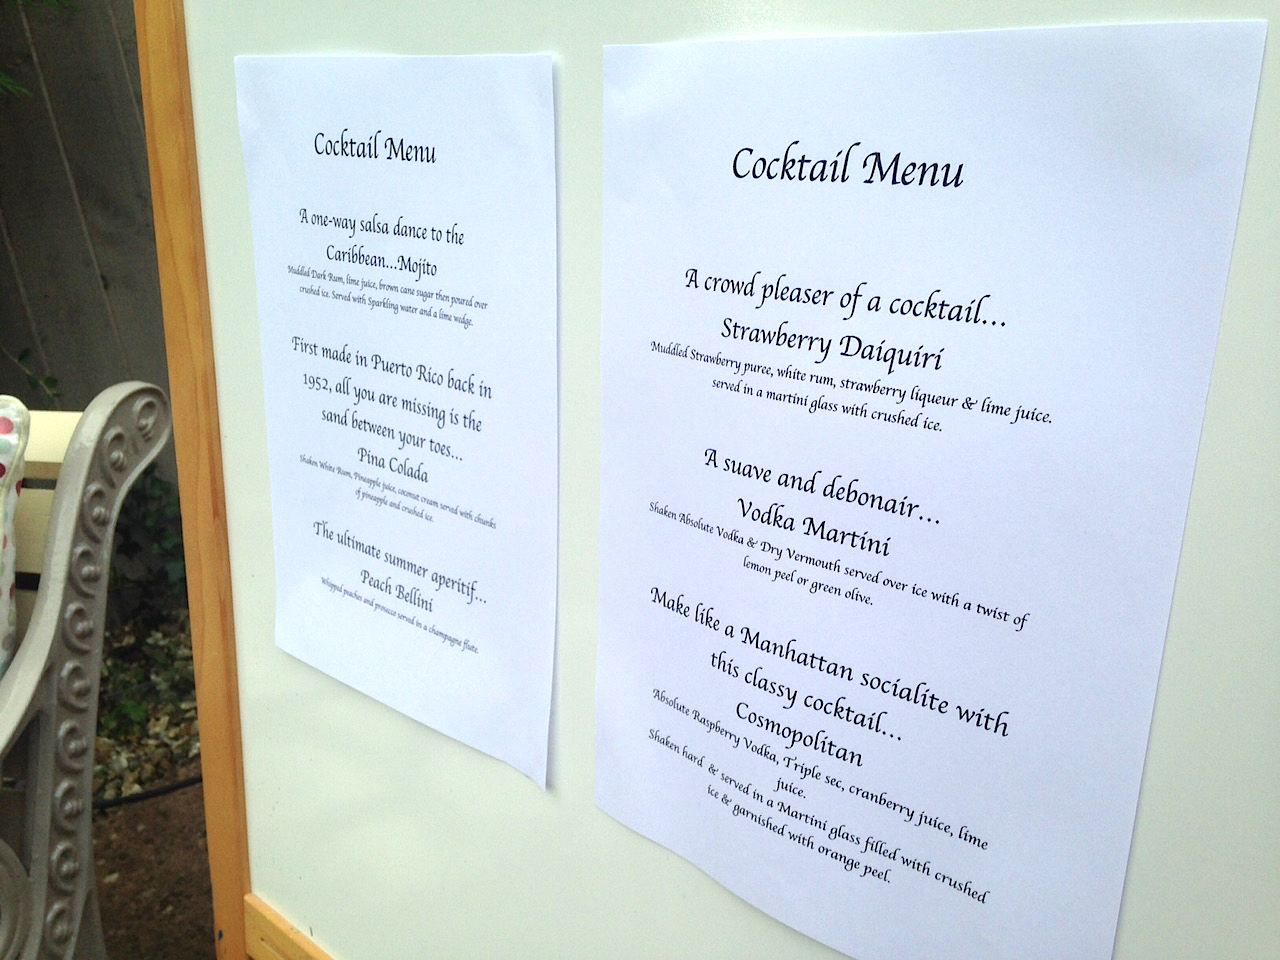 Cocktail Menu
A one-way salsa dance to the
Caribbean...Mojito
Muddled Dark Rum, lime juice, brown cane sugar then poured over
crushed ice. Served with Sparkling water and a lime wedge.
First made in Puerto Rico back in
1952, all you are missing is the
sand between your toes...
Pina Colada
Shaken White Rum, Pineapple juice, coconut cream served with chunks
of pineapple and crushed ice.
The ultimate summer aperitif...
Peach Bellini
Whipped peaches and prosecco served in a champagne flute.
Cocktail Menu
A crowd pleaser of a cocktail...
Strawberry Daiquiri
Muddled Strawberry puree, white rum, strawberry liqueur & lime juice.
served in a martini glass with crushed ice.
A suave and debonair...
Vodka Martini
Shaken Absolute Vodka & Dry Vermouth served over ice with a twist of
lemon peel or green olive.
Make like a Manhattan socialite with
this classy cocktail...
Cosmopolitan
Absolute Raspberry Vodka, Triple sec, cranberry juice, lime
juice.
Shaken hard & served in a Martini glass filled with crushed
ice & garnished with orange peel.